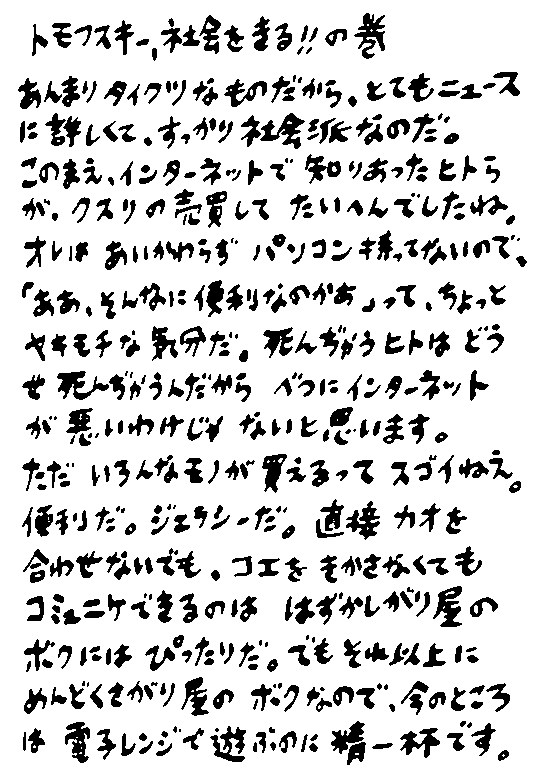 トモフスキー,社会をきる!!の巻
あんまりタイクツなものだから、とてもニュース
に詳しくて、すっかり社会派なのだ。
このまえ、インターネットで知りあったヒトら
が、クスリの売買して たいへんでしたね。
オレは あいかわらず パソコン持ってないので、
「ああ、そんなに便利なのかあ」って、ちょっと
ヤキモチな気分だ。死んぢかうヒトは どう
せ 死んぢかうんだから べつにインターネット
が 悪いわけじゃ ないと思います。
ただ いろんなモノが買えるって スゴイねえ。
便利だ。ジェラシーだ。直接 カオを
合わせないでも、コエを きかさなくても
コミュニケできるのは はずかしがり屋の
ボクには ぴったりだ。でも それ以上に
めんどくさがり屋の ボクなので、今のところ
は 電子レンジで 遊ぶのに 精一杯です。